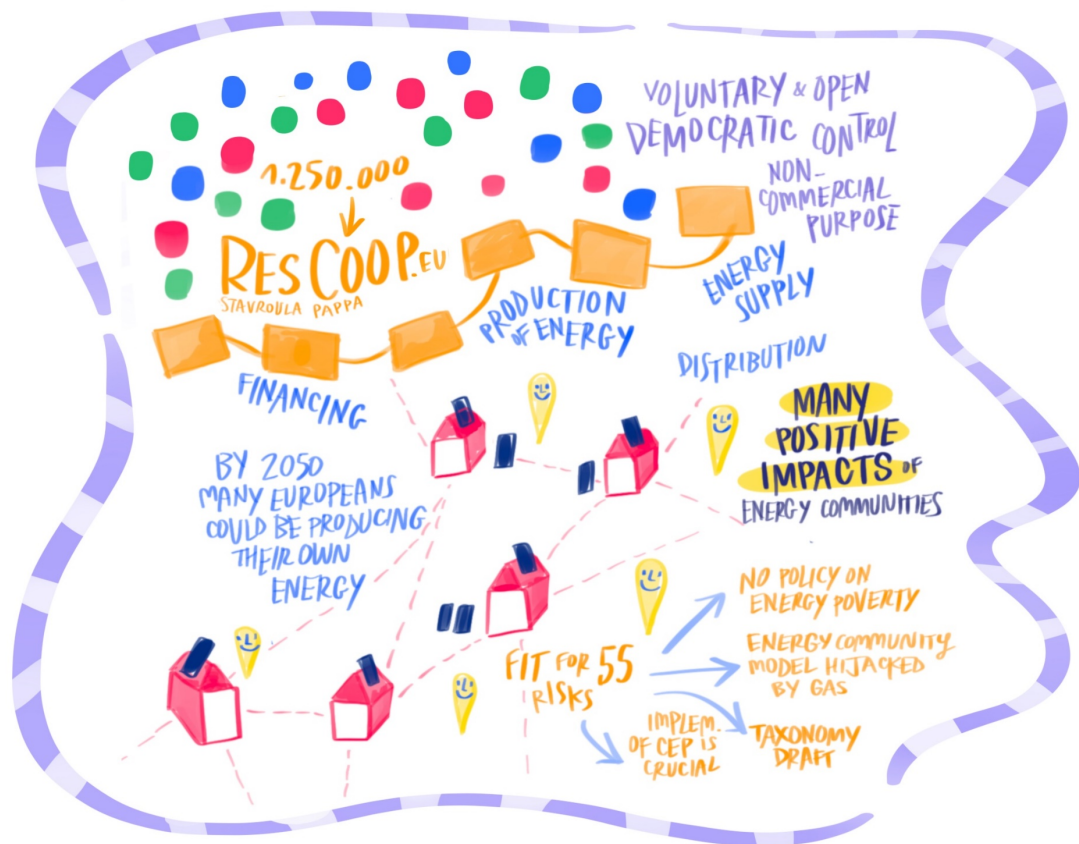 VOLUNTARY & OPEN
DEMOCRATIC CONTROL
NON-
COMMERCIAL
PURPOSE
1.250.000
RESCOOP.EU
STAVROULA PAPPA
FINANCING
PRODUCTION
OF ENERGY
ENERGY
SUPPLY
DISTRIBUTION
MANY
POSITIVE
IMPACTS OF
ENERGY COMMUNITIES
BY 2050
MANY EUROPEANS
COULD BE PRODUCING
THEIR OWN
ENERGY
FIT FOR 55
RISKS
NO POLICY ON
ENERGY POVERTY
ENERGY COMMUNITY
MODEL HIJACKED
BY GAS
TAXONOMY
DRAFT
IMPLEM.
OF CEP IS
CRUCIAL